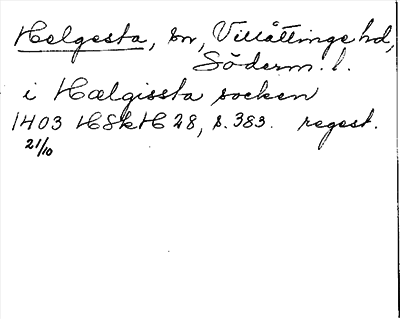 Helgesta, sn, Villåttinge hd,
Söderm. l.
i Hælgissta socken
1403 HSkH 28, s. 383. regest.
21/10